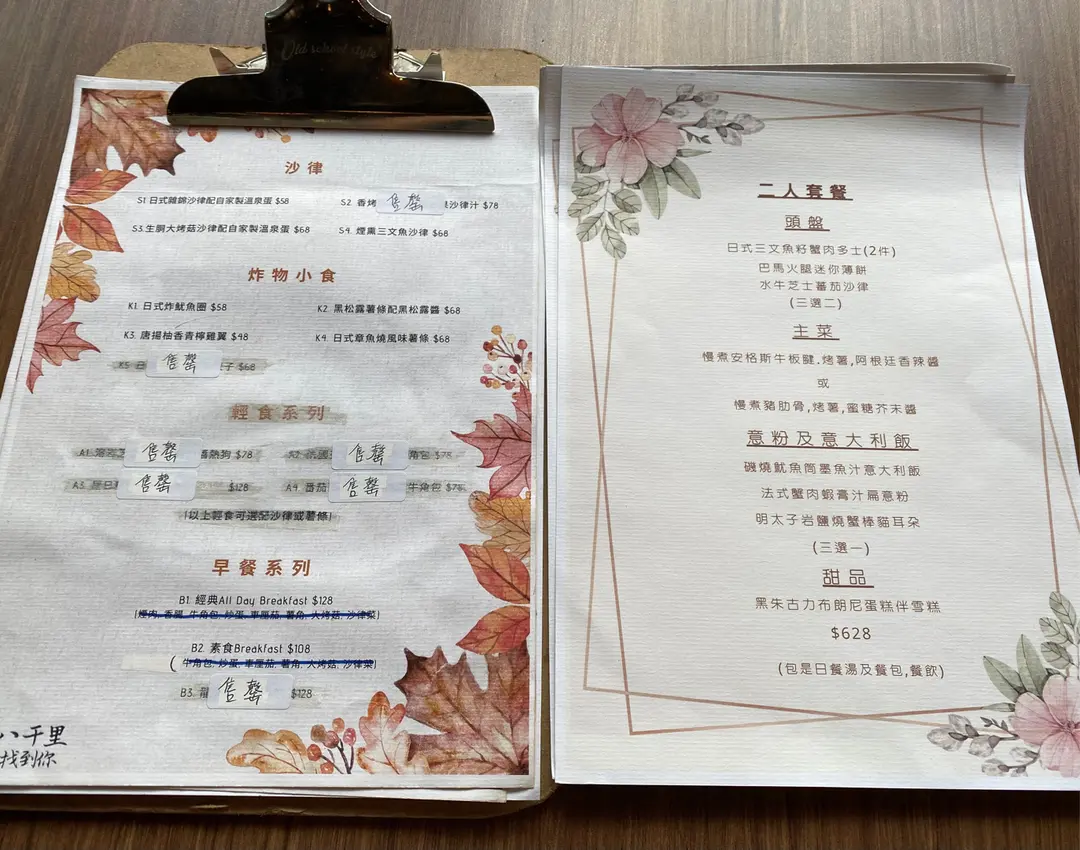 Old school style
沙律
S1 日式雜錦沙律配自家製溫泉蛋 $58
S2. 香烤 售罄 沙律汁 $78
S3.生胴大烤菇沙律配自家製溫泉蛋 $68
S4. 煙熏三文魚沙律 $68
炸物小食
K1. 日式炸魷魚圈 $58
K2. 黑松露薯條配黑松露醬 $68
K3. 唐揚柚香青檸雞翼 $48
K4. 日式章魚燒風味薯條 $68
K5 售罄 子 $68
輕食系列
A1. 售罄 熱狗 $78
A2. 售罄 角包 $78
A3. 售罄 $128
A4. 番茄 售罄 牛角包 $78
(以上輕食可選配沙律或薯條)
早餐系列
B1. 經典All Day Breakfast $128
(煙肉, 香腸, 牛角包, 炒蛋, 車厘茄, 薯角, 大烤菇, 沙律菜)
B2. 素食Breakfast $108
( 牛角包, 炒蛋, 車厘茄, 薯角, 大烤菇, 沙律菜)
B3. 售罄 $128
八千里
找到你
二人套餐
頭盤
日式三文魚籽蟹肉多士(2件)
巴馬火腿迷你薄餅
水牛芝士蕃茄沙律
(三選二)
主菜
慢煮安格斯牛板腱.烤薯,阿根廷香辣醬
或
慢煮豬肋骨,烤薯,蜜糖芥末醬
意粉及意大利飯
磯燒魷魚筒墨魚汁意大利飯
法式蟹肉蝦膏汁扁意粉
明太子岩鹽燒蟹棒貓耳朶
(三選一)
甜品
黑朱古力布朗尼蛋糕伴雪糕
$628
(包是日餐湯及餐包,餐飲)